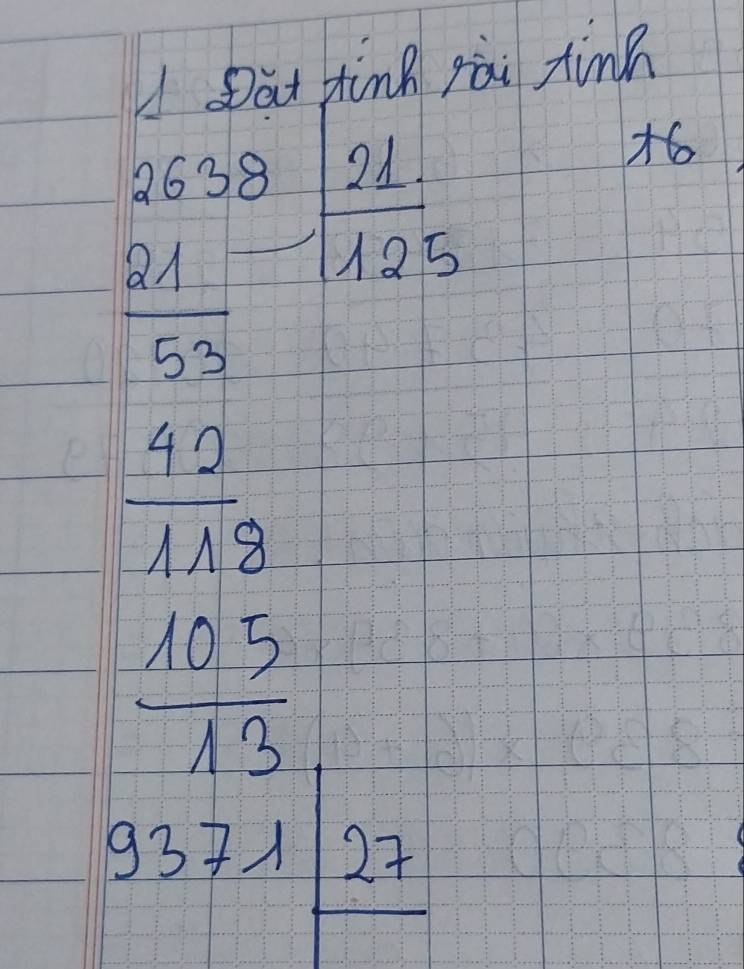 1 Đặt tính rồi tính
2638 21 76
21 125
53
42
118
105
13
9371 27